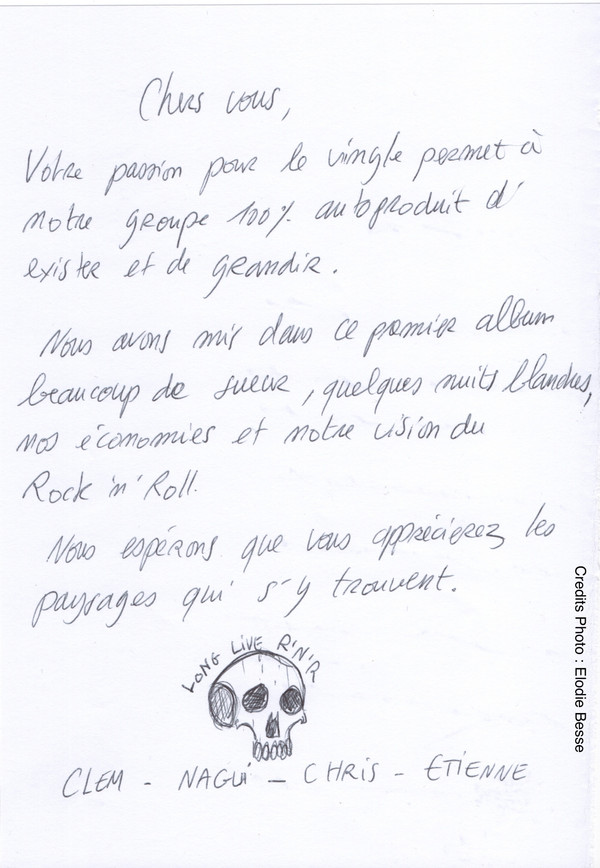 Chers vous,
Votre passion pour le vinyle permet à
notre groupe 100% autoproduit d'
exister et de grandir.
Nous avons mis dans ce premier album
beaucoup de sueur, quelques nuits blanches,
nos économies et notre vision du
Rock 'n' Roll.
Nous espérons que vous apprécierez les
paysages qui s'y trouvent.
LONG LIVE R'N'R
CLEM - NAGUI - CHRIS - ETIENNE
Credits Photo : Elodie Besse